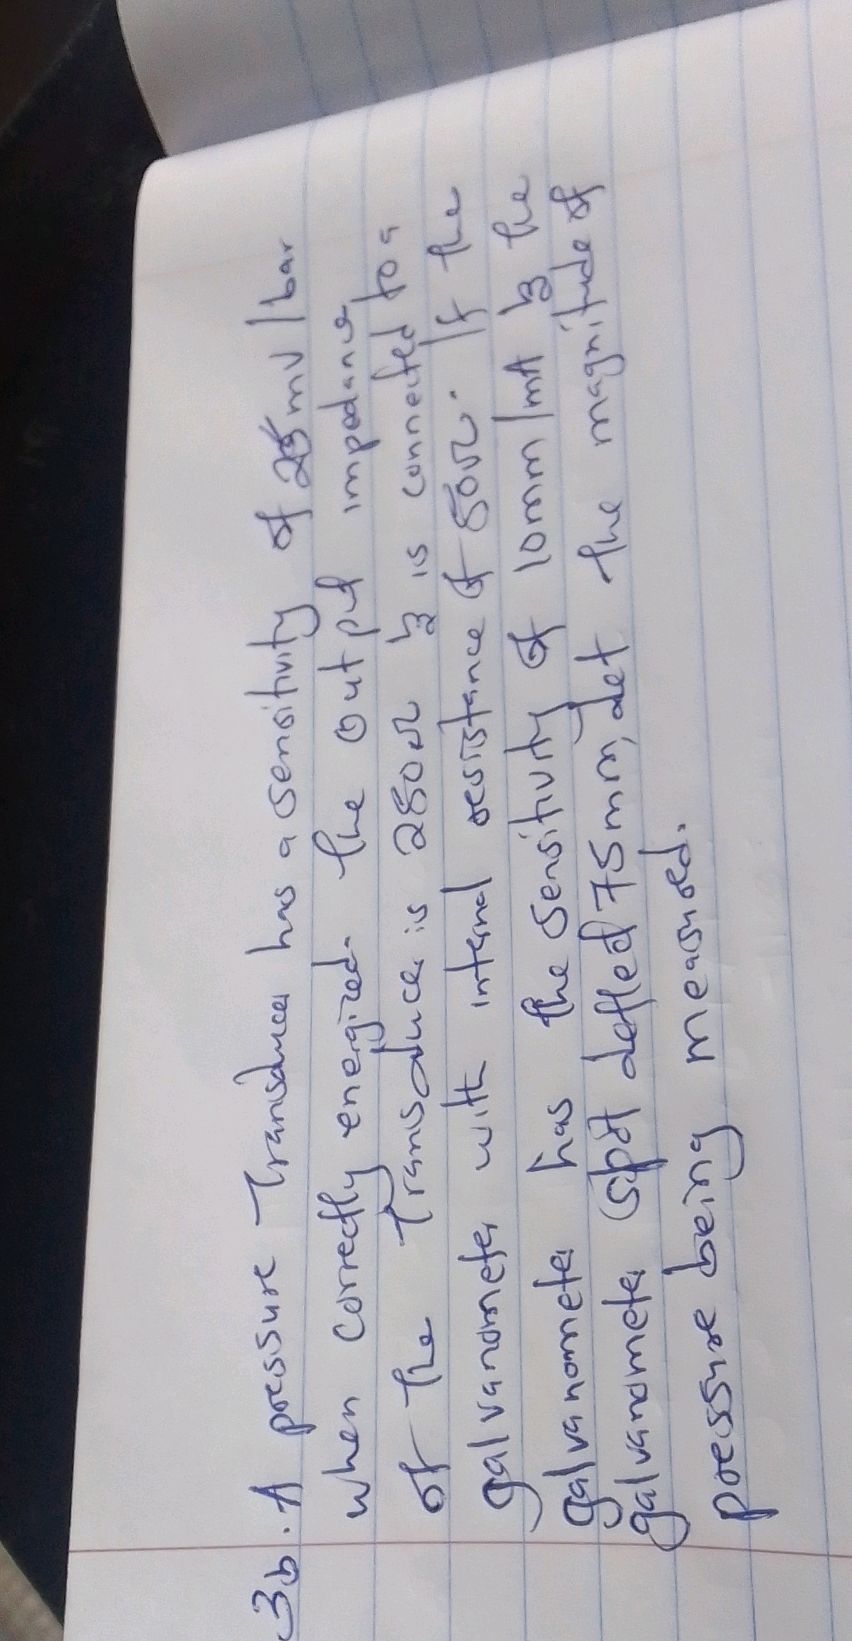 3b. A pressure Transducer has a sensitivity of 25mV/bar
when correctly energized. the output impedance
of the transducer is 250Ω & is connected to a
galvanometer with internal resistance of 50Ω. If the
galvanometer has the sensitivity of 10mm/mA & the
galvanometer spot defled 75mm, det the magnitude of
pressure being measured.